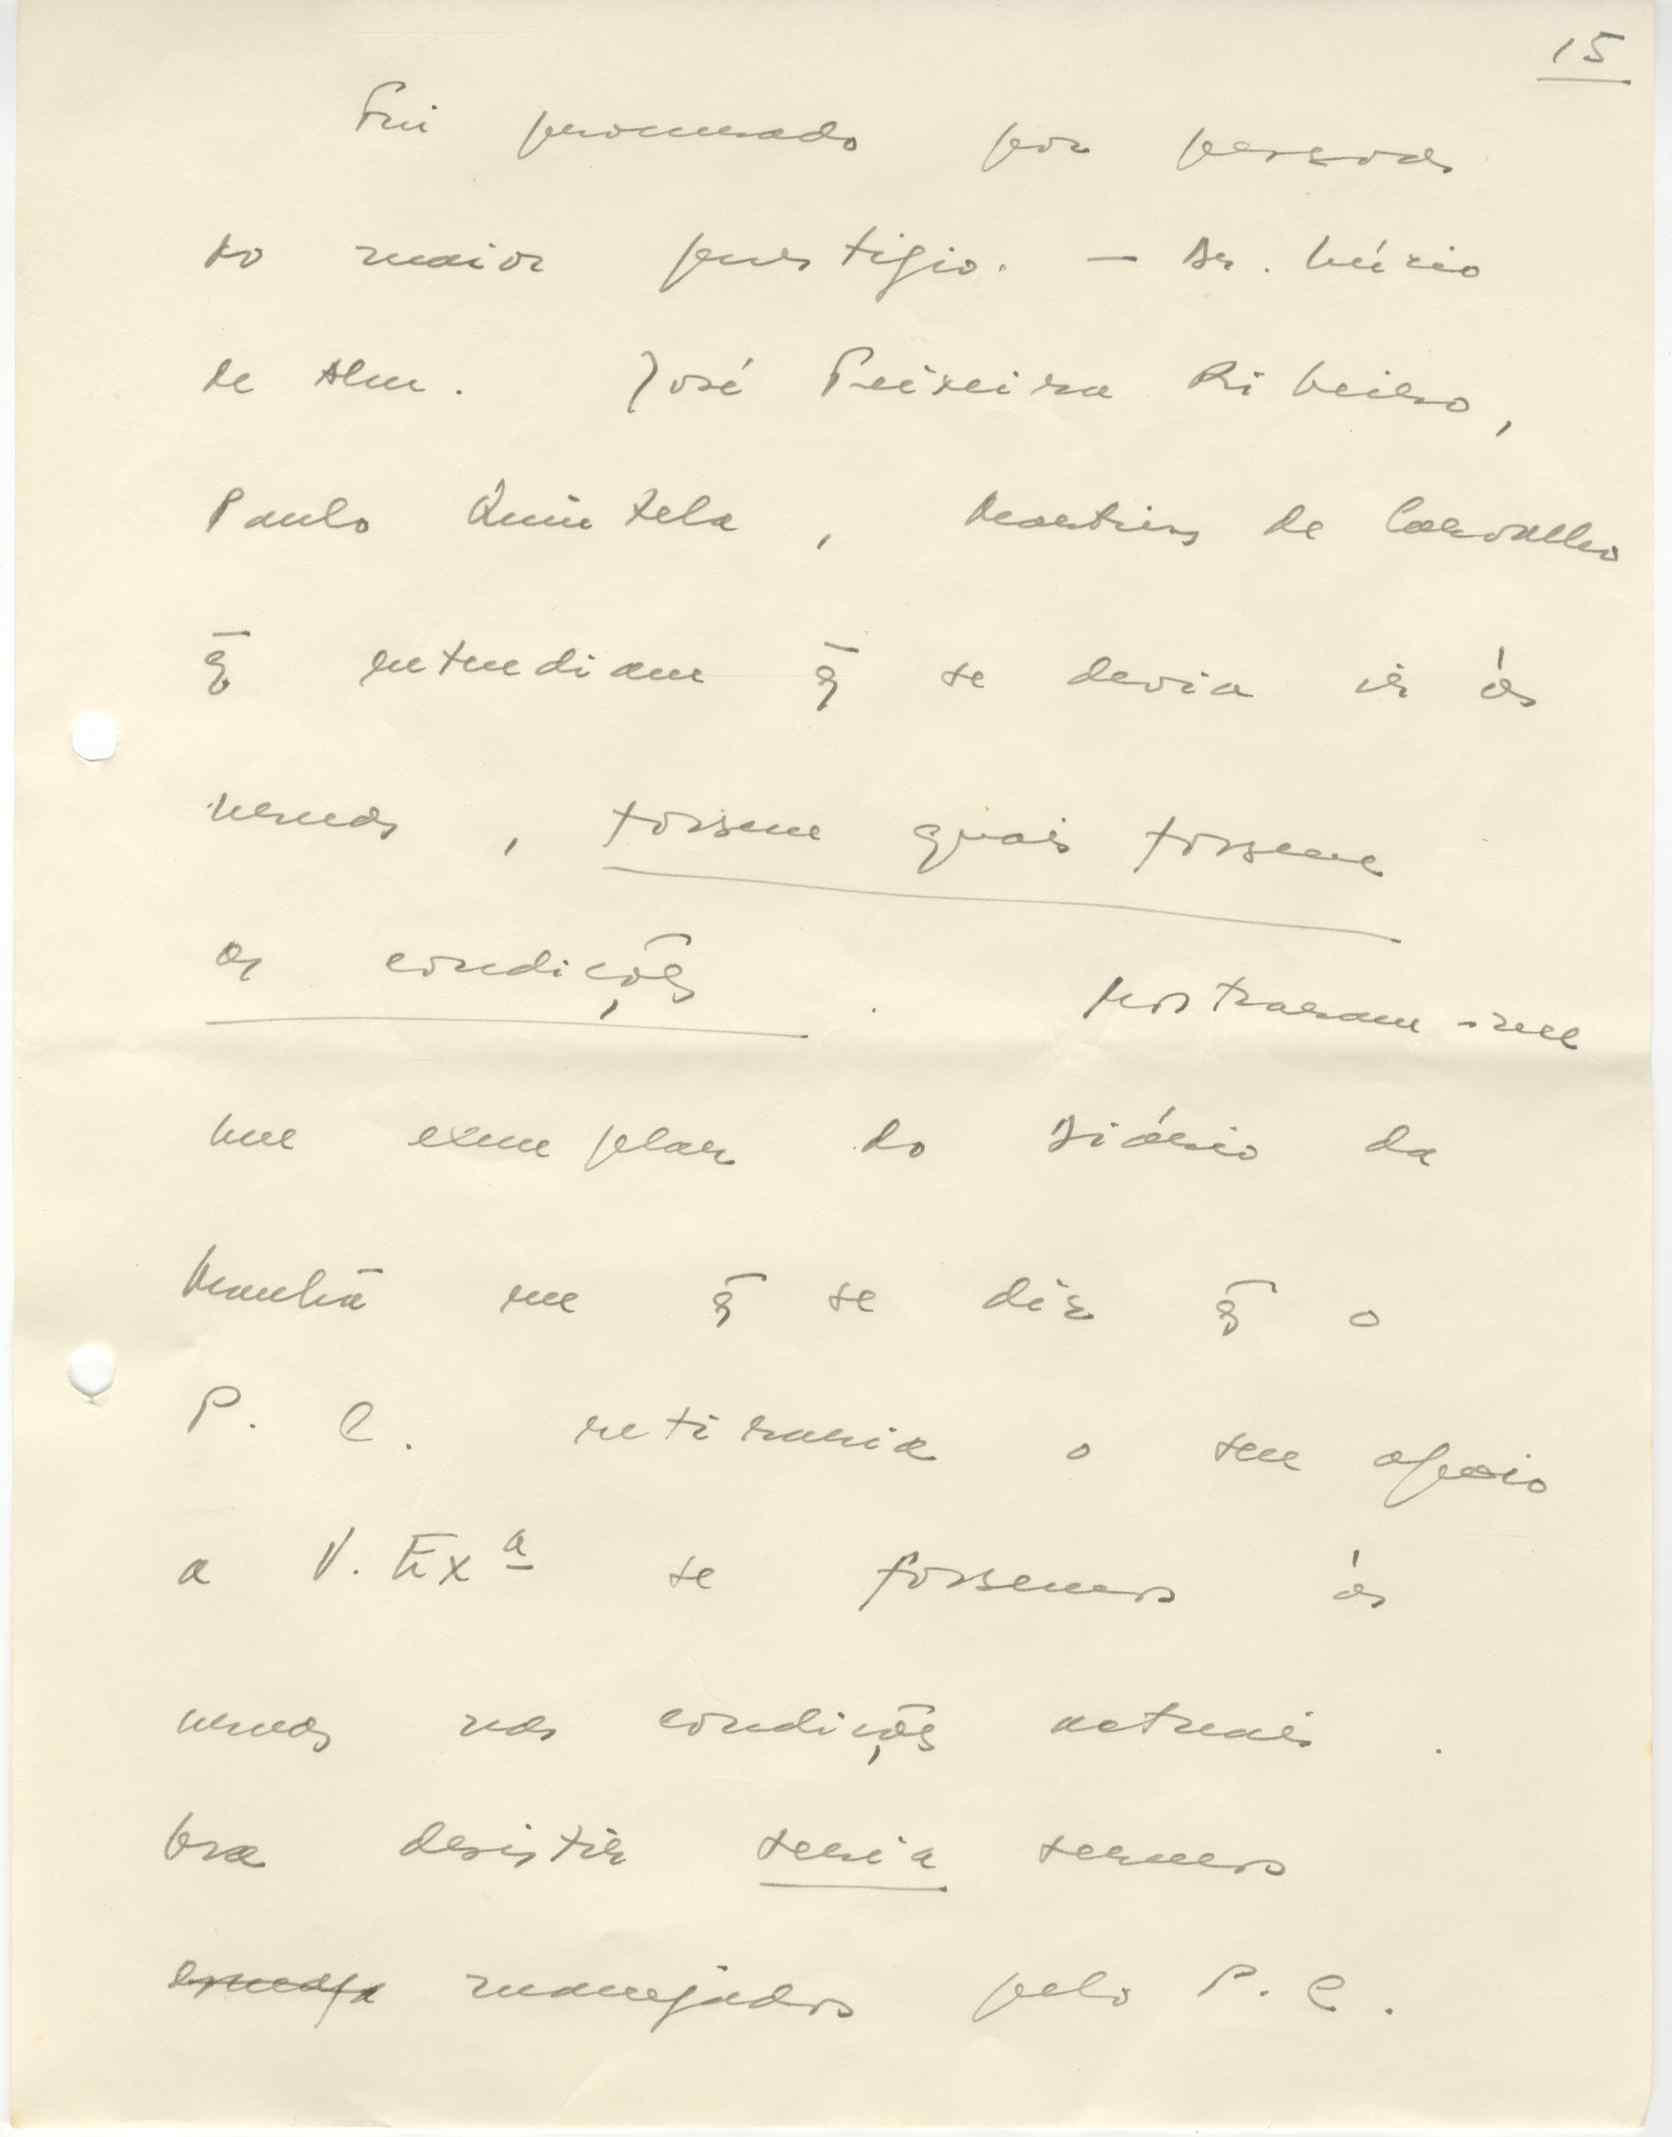 15
Fui procurado por pessoas
do maior prestigio. — Dr. Lúcio
de Alm. José Teixeira Ribeiro,
Paulo Quintela, Martins de Carvalho
q̄ entendiam q̄ se devia ir ás
urnas, fossem quais fossem
as condições. Mostraram-me
um exemplar do Diário da
Manhã em q̄ se diz q̄ o
P. C. retiraria o seu apoio
a V. Exª se fossemos ás
urnas nas condições actuais.
Ora desistir seria sermos
manejados pelo P. C.